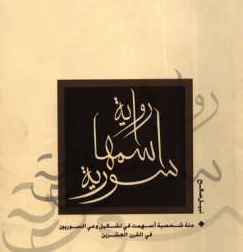 رواية
اسمها
سورية
نبيل صالح
مئة شخصية أسهمت في تشكيل وعي السوريين
في القرن العشرين